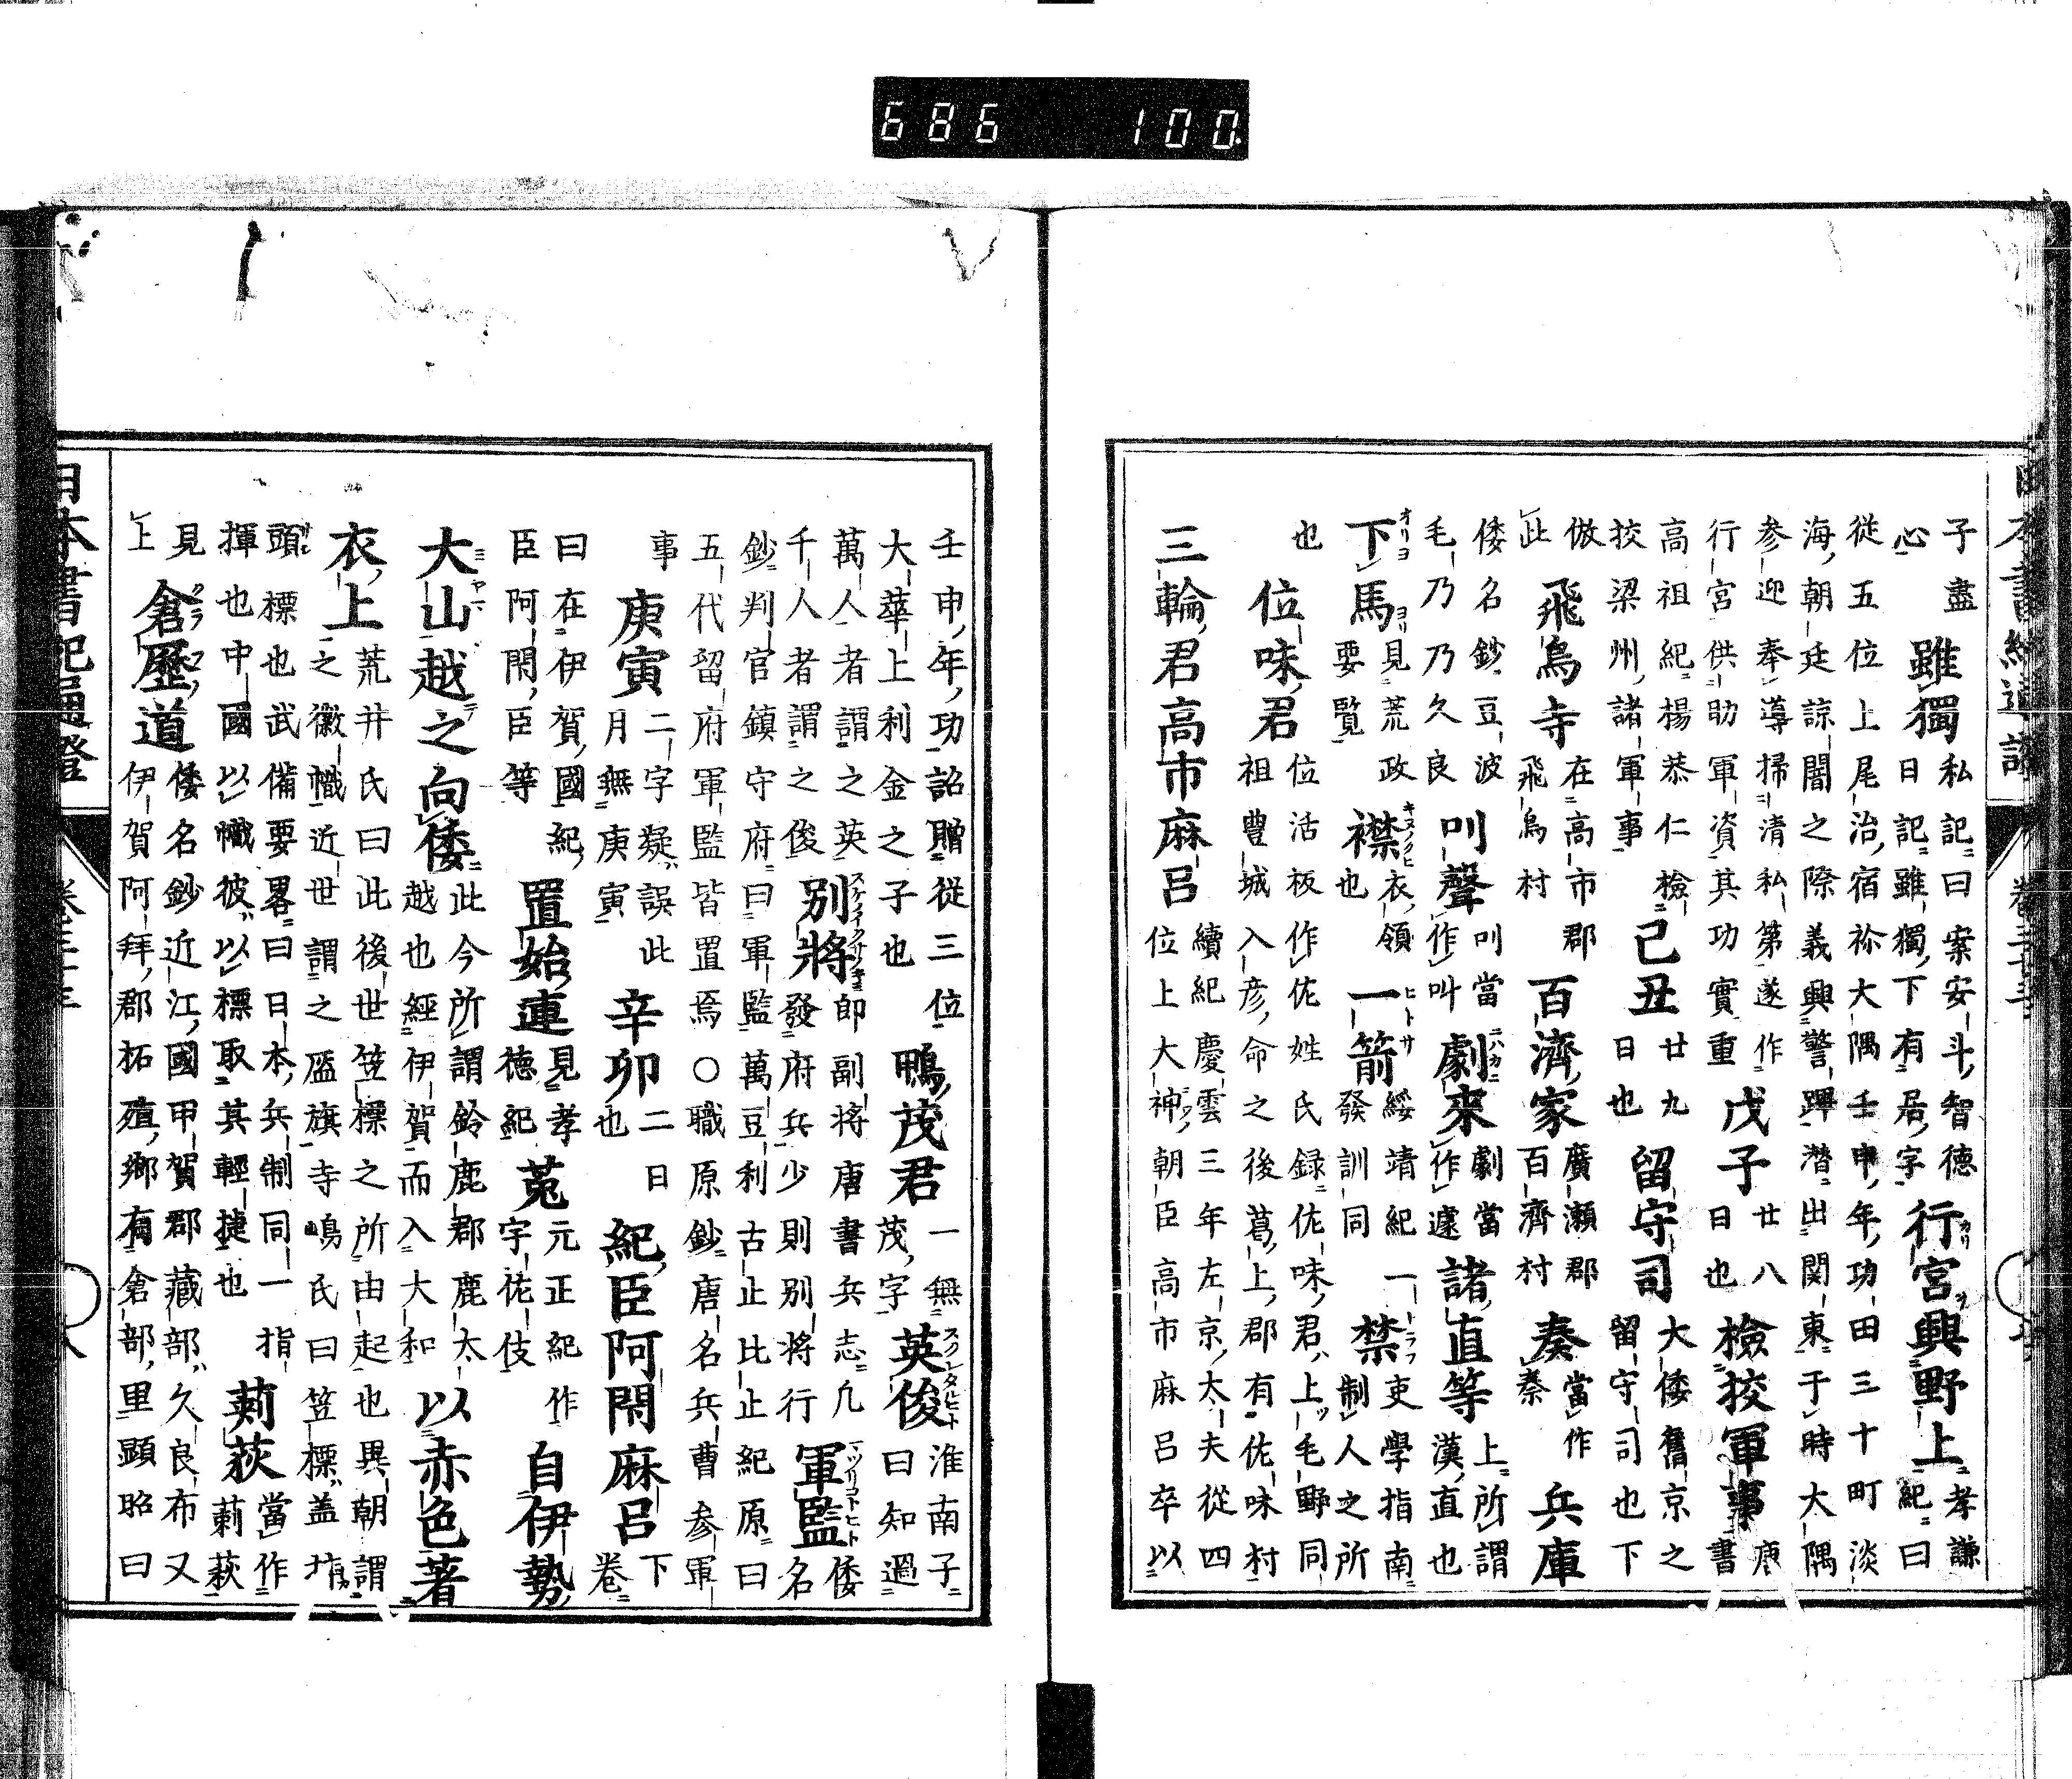 日本書紀通證　卷三十三
子盡
心
雖獨
私記曰案安斗智德
日記雖獨下有居字
行宮興野上
孝謙
紀曰
從五位上尾治宿祢大隅壬申年功田三十町淡
海朝廷諒闇之際義興警蹕潜出関東于時大隅
参迎奉導掃清私第遂作
行宮供助軍資其功實重
戊子
廿八
日也
檢挍軍事
庾
書
高祖紀楊恭仁檢
挍梁州諸軍事
己丑
廿九
日也
留守司
大倭舊京之
留守司也下
倣
此
飛鳥寺
在高市郡
飛鳥村
百濟家
廣瀬郡
百濟村
奏
當作
秦
兵庫
倭名鈔豆波
毛乃乃久良
叫聲
叫當
作叫
劇來
劇當
作遽
諸直等
上所謂
漢直也
下馬
見荒政
要覧
襟
衣領
也
一箭
綏靖紀一
發訓同
禁
吏學指南
制人之所
也
位味君
位活板作佐姓氏録佐味君上毛野同
祖豊城入彦命之後葛上郡有佐味村
三輪君高市麻呂
續紀慶雲三年左京太夫從四
位上大神朝臣高市麻呂卒以
壬申年功詔贈從三位
大華上利金之子也
鴨茂君
一無
茂字
英俊
淮南子
曰知過
萬人者謂之英
千人者謂之俊
別將
即副将唐書兵志凢
發府兵少則別将行
軍監
倭
名
鈔判官鎮守府曰軍監萬豆利古止比止紀原曰
五代留府軍監皆置焉○職原鈔唐名兵曹参軍
事
庚寅
二字疑誤此
月無庚寅
辛卯
二日
也
紀臣阿閇麻呂
下
卷
曰在伊賀國紀
臣阿閇臣等
置始連
見孝
德紀
菟
元正紀作
宇佐伎
自伊勢
大山越之向倭
此今所謂鈴鹿郡鹿太
越也經伊賀而入大和
以赤色著
衣上
荒井氏曰此後世笠標之所由起也異朝謂
之徽幟近世謂之旗寺嶋氏曰笠標盖
頭標也武備要畧曰日本兵制同一指
揮也中國以幟彼以標取其輕捷也
莿荻
當作
莿萩
見
上
倉歷道
倭名鈔近江國甲賀郡藏部久良布又
伊賀阿拜郡柘殖郷有倉部里顕昭曰
日本書紀通證　卷三十三
686 100